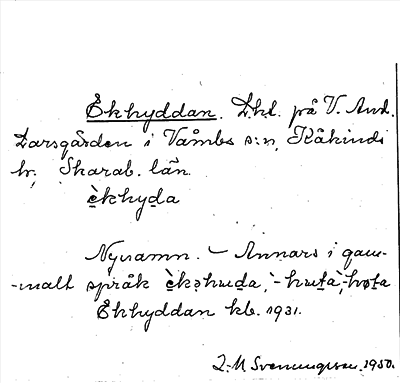 Ekhyddan. Lht. på V. And.
Larsgården i Våmbs s:n, Kåkinds
hr, Skarab. län.
èkhyda
Nynamn. – Annars i gam-
-malt språk èkhuda, -huta, -hota
Ekhyddan kb. 1931.
I.-M Svenungsson. 1950.